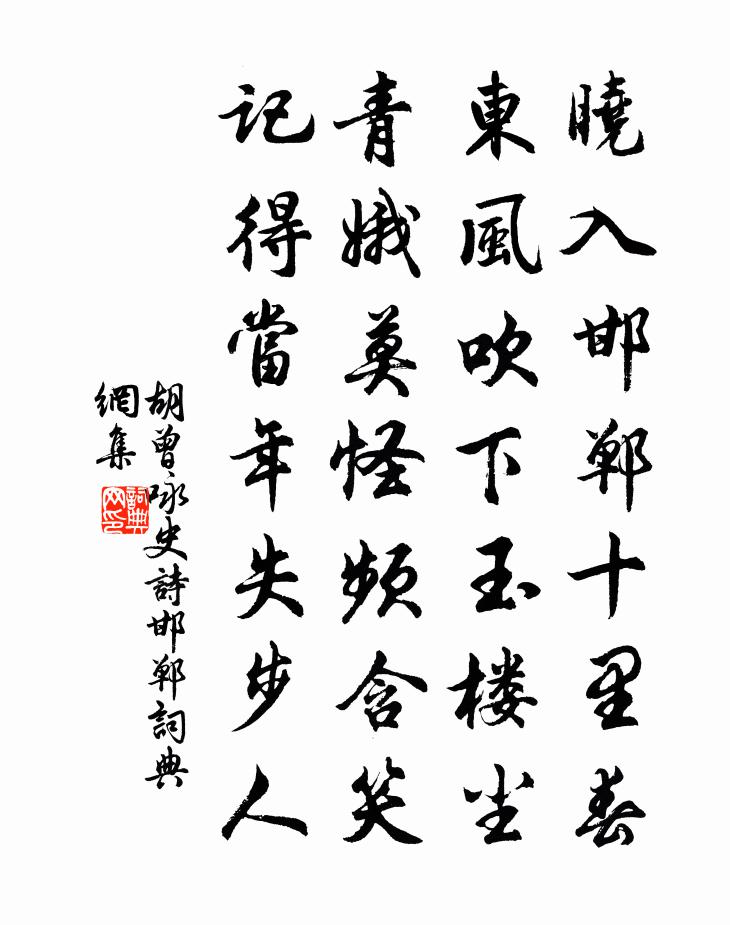 曉入邯鄲十里春
東風吹下玉楼尘
青娥莫怪频含笑
記得當年失步人
胡曾咏史詩邯鄲詞典
網集
詞典
网印